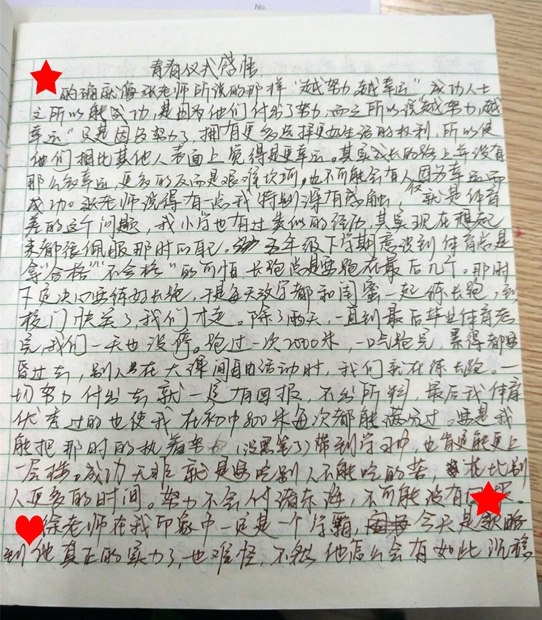 No.
青春仪式感悟
的确就像张老师所说的那样“越努力越幸运”成功人士
之所以能成功,是因为他们付出了努力,而之所以说越努力,越
幸运”只是因为努力了,拥有更多选择更好生活的权利,所以使
他们相比其他人表面上觉得是更幸运。其实成长的路上并没有
那么多幸运,更多的反而是艰难坎坷,也不可能会有人因为幸运而
成功。张老师说得有一点我特别深有感触,仅就是体育
差的这个问题,我小学也有过类似的经历,其实现在想起
来都很佩服那时的自己。五年级下学期意识到体育总是
拿“合格”“不合格”的可怕,长跑总是要跑在最后几个。那时
下定决心要练好长跑,于是每天放学都和闺蜜一起练长跑,到
校门快关了,我们才走。除了雨天,一直到最后毕业体育考
完,我们一天也没停。跑过一次2000米,一口气跑完,累得都要
昏过去,别人在大课间自由活动时,我们就在练长跑。一
切努力付出去就一定有回报,不出所料,最后我体育
优秀过的也使我在初中800米每次都能满分过。要是我
能把那时的执着 (没黑笔了)带到学习中,也肯定能更上
一层楼。成功无非就是要吃别人不能吃的苦,花比别
人更多的时间。努力不会付诸东流,不可能没有
徐老师在我印象中一定是一个学霸,今天是领略
到他真正的实力了,也难怪,不然他怎么会有如此沉稳